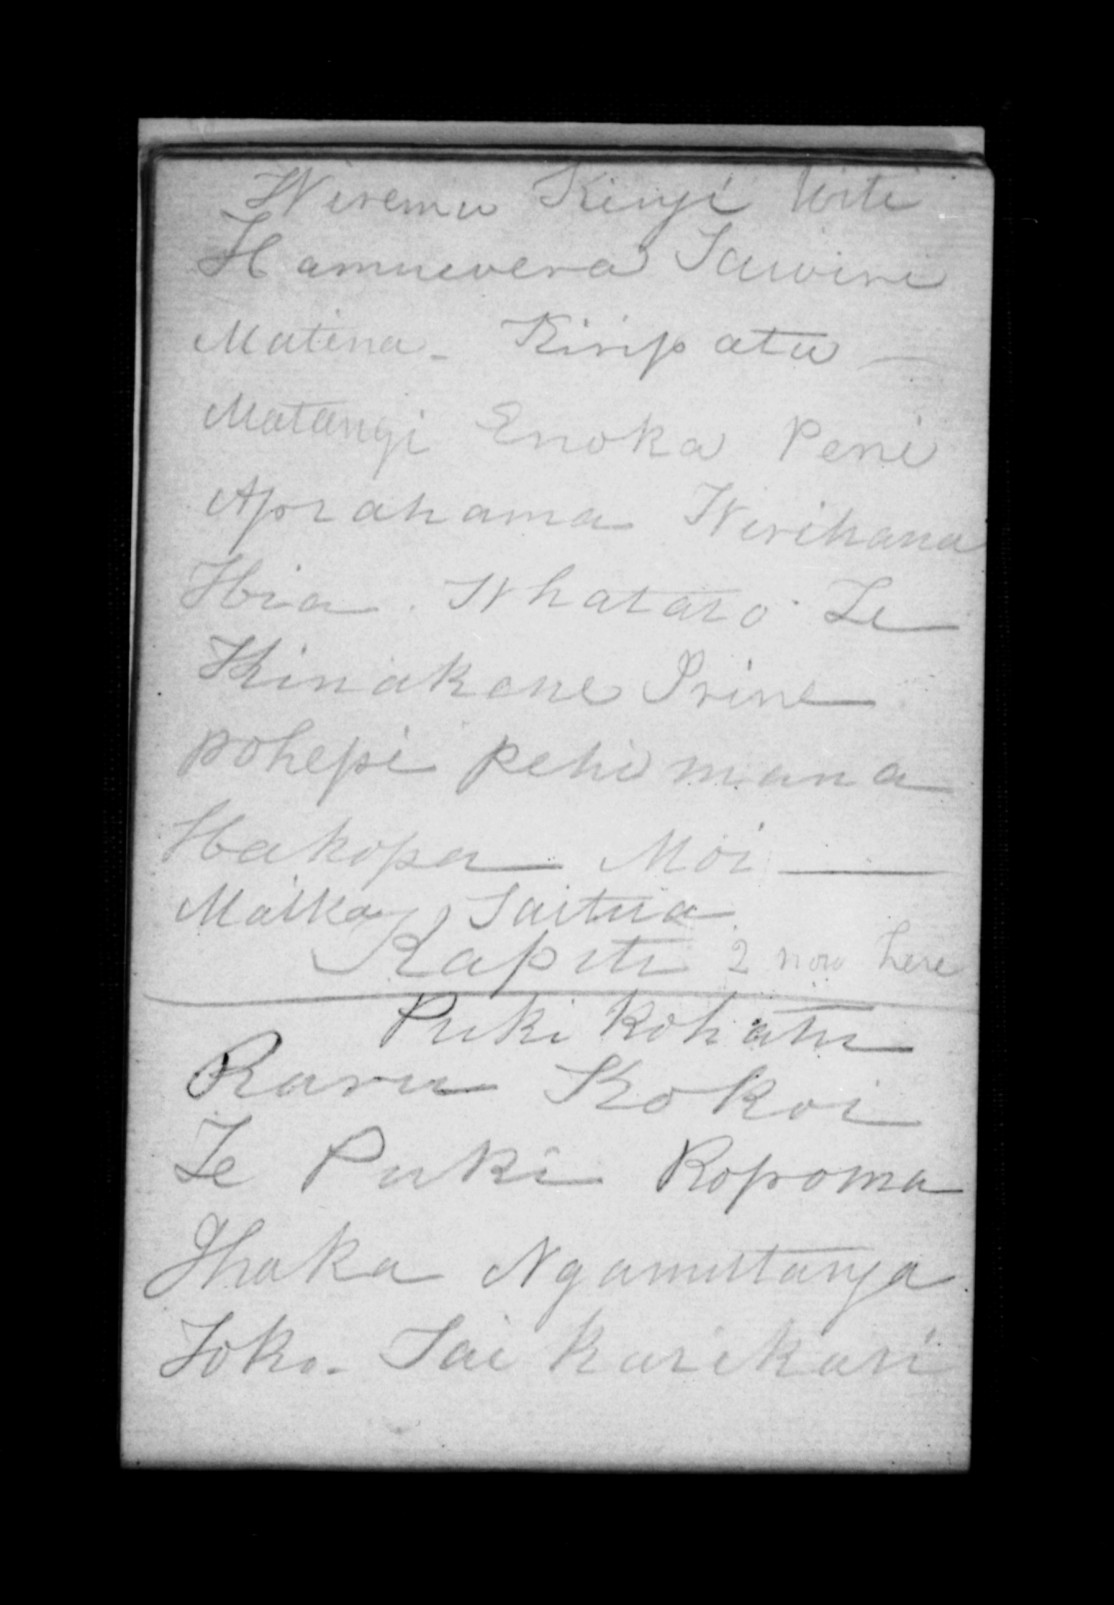 Wiremu Kingi Witi
Hamuevera Tawiri
Matina - Kiripatu —
Matangi Enoka Peni
Aprahama Wirihana
Hoia . Whataro Te
Hinakone Prine
Pohepi Pehimana
Hakopa Moi —
Maika Taitua
Kapiti 2 now here
Puki Kohatu
Raru Kokoi
Te Puki Ropoma
Ihaka Ngamutanga
Toko - Tai Karikari